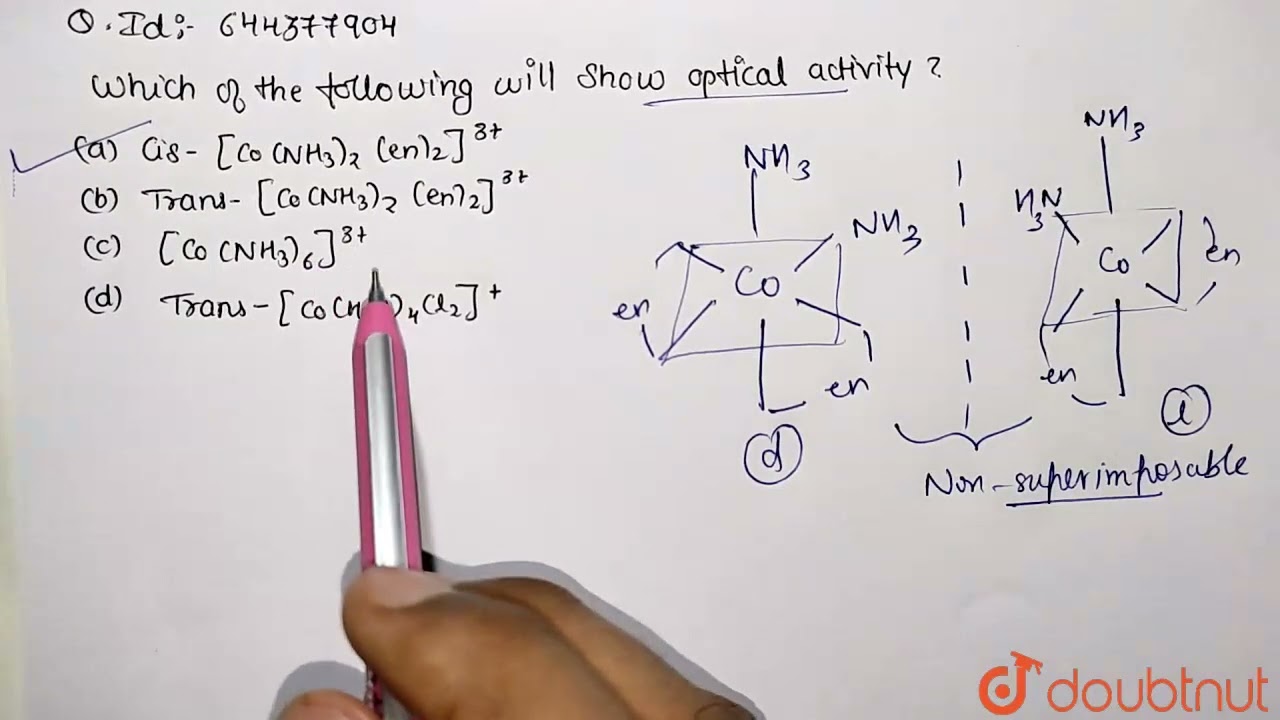 Q. Id:- 644377904
Which of the following will show optical activity?
(a) Cis- [Co(NH3)2 (en)2]3+
(b) Trans- [Co(NH3)2 (en)2]3+
(c) [Co(NH3)6]3+
(d) Trans- [Co(N )4Cl2]+
NH3
NH3
Co
en
en
d
NH3
H3N
Co
en
en
l
Non-superimposable
doubtnut